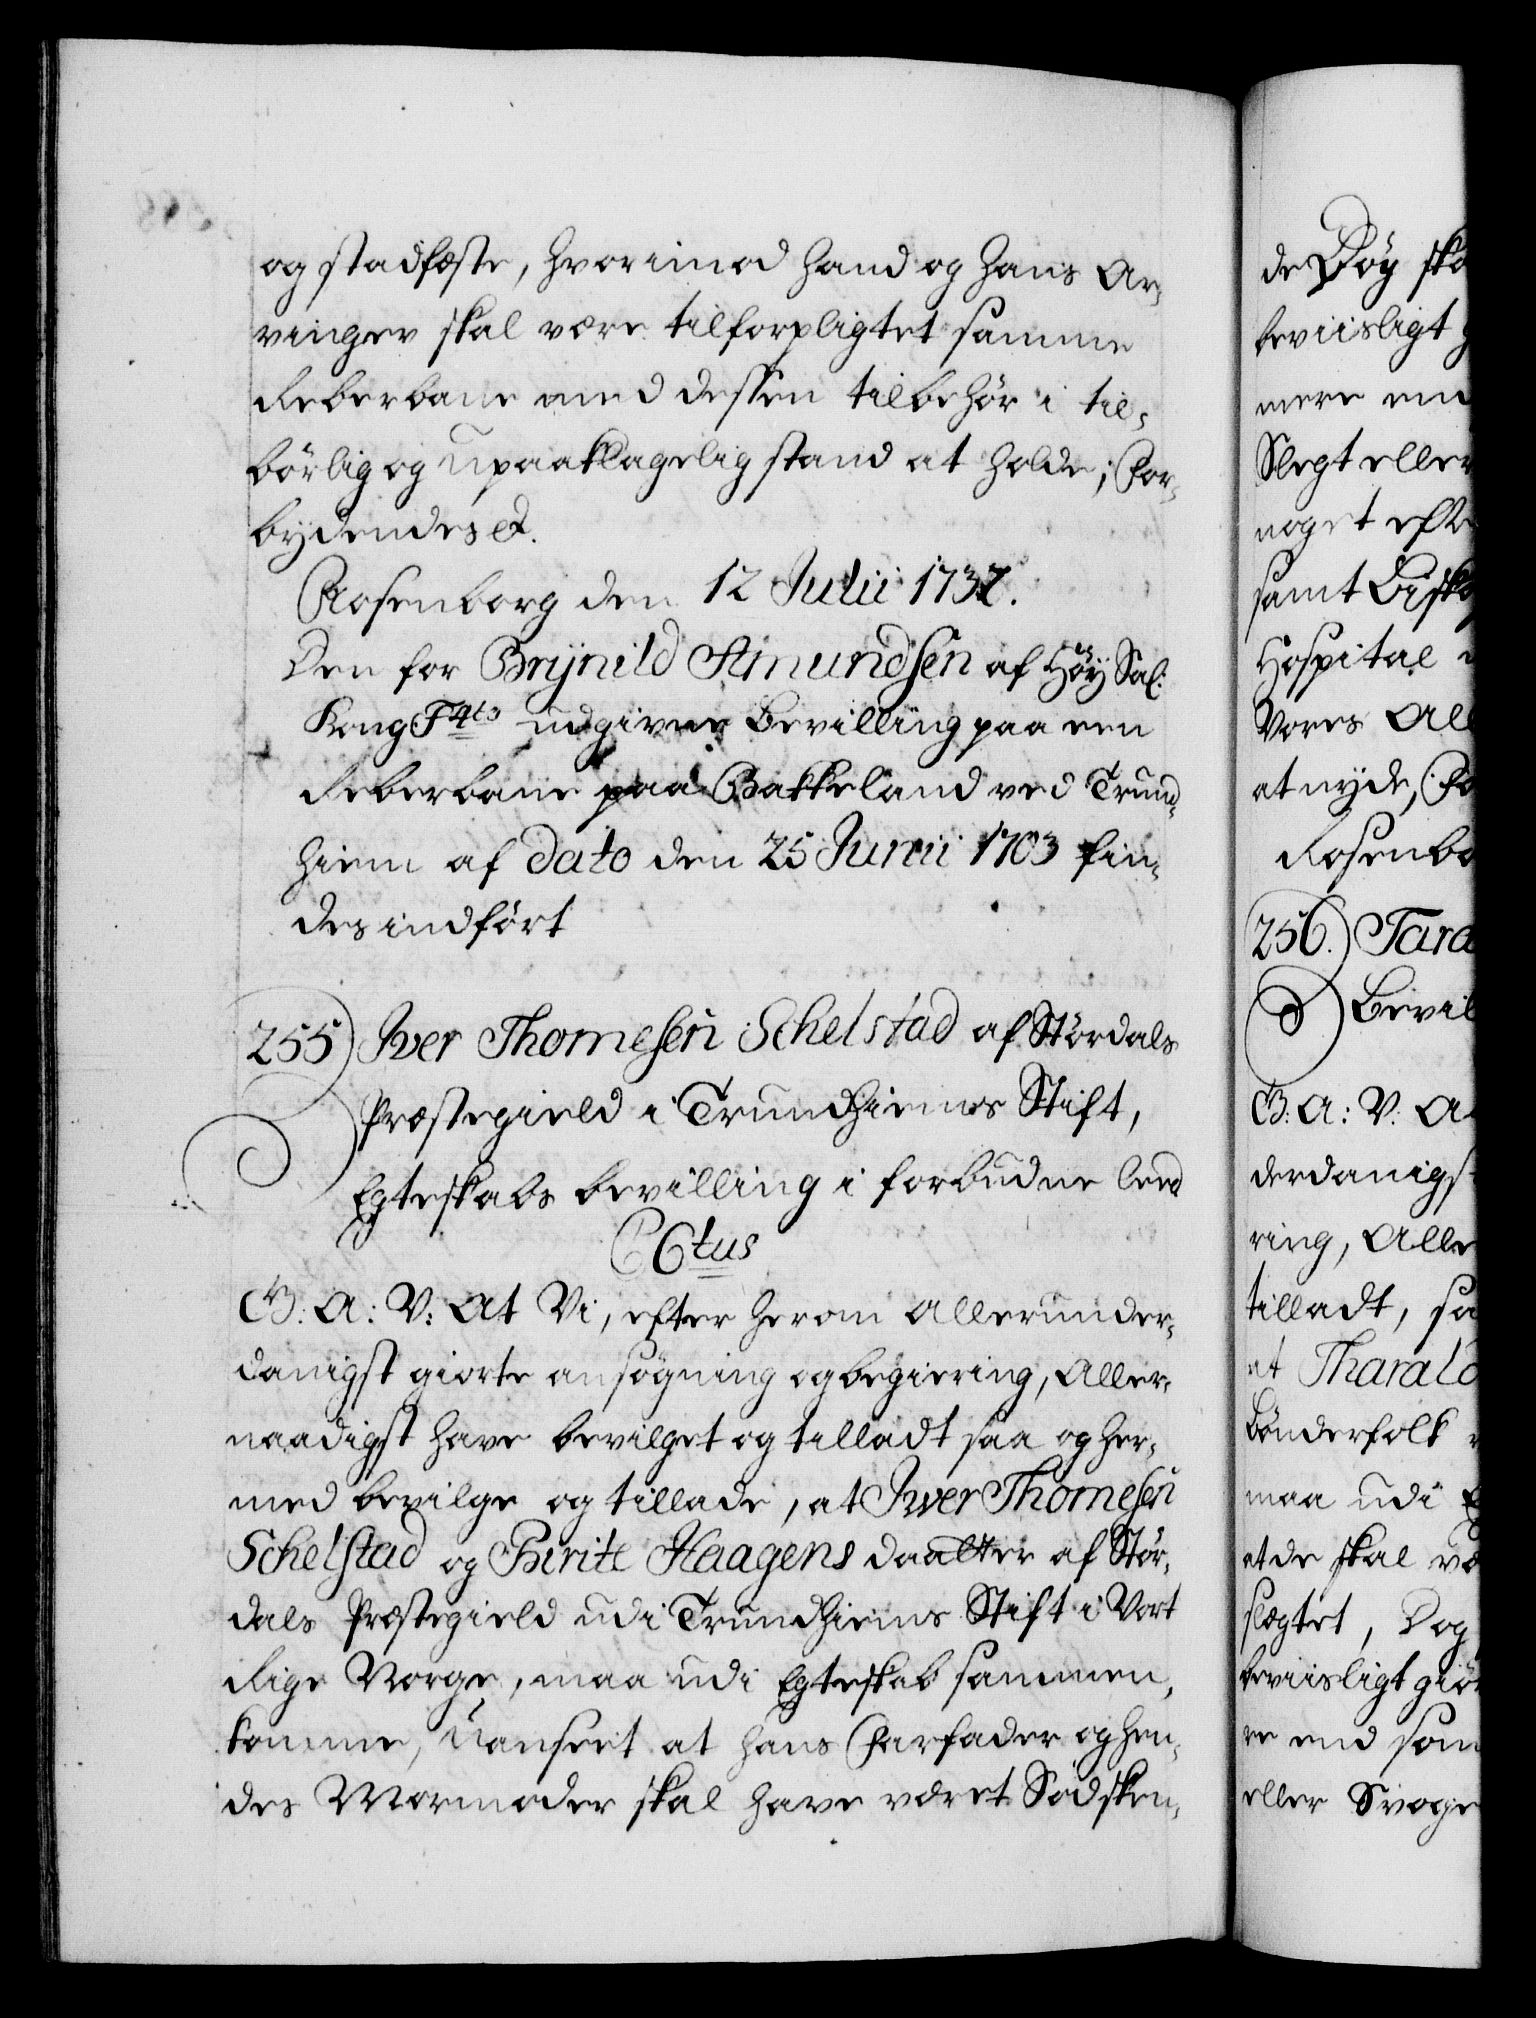 og stadfæste, hvorimod hand og hans Ar-
vinger skal være tilforpligtet samme
Reberbane med dessen tilbehør i til-
børlig og upaaklagelig stand at holde; For-
bydendes &.
Rosenborg den 12 Julii 1737.
Den for Brÿnild Amundsen af Høÿ Sal:
Kong F4ts udgivne bevilling paa een
Reberbane paa Bakkeland ved Trund-
hiem af Dato den 25 Junii 1703 fin-
des indført
255) Iver Thomesen Schelstad af Stördals
Præstegield i Trundhiems Stift,
Egteskabs bevilling i forbudne leed
C6tus
G: A: V: At Vi, efter herom allerunder-
danigst giorte ansøgning og begiering, Aller-
naadigst have bevilget og tilladt saa og her-
med bevilge og tillade, at Iver Thomesen
Schelstad og Birite Haagens daatter af Stör-
dals Præstegield udi Trundhiems Stift i Vort
Rige Norge, maa udi Egteskab sammen-
komme, uanseet at hans Farfader og hen-
des Mormoder skal have været Södsken-
de Dog ska
beviisligt g
mere end
Slegt eller
noget efte
samt Bisko
Hospital
Vores All
at nyde, Fo
Rosenbo
256.) Tara
Bevil
G. A: V. A
derdanigst
ring, Alle
tilladt, sa
at Tharald
bönderfolk
maa udi E
at de skal væ
slegtet, Dog
beviisligt giör
re end som
eller Svoge